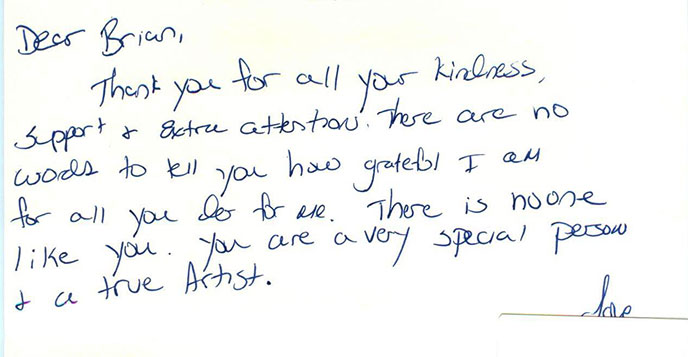 Dear Brian,
Thank you for all your kindness,
support & extra attention. There are no
words to tell you how grateful I am
for all you do for me. There is no one
like you. You are a very special person
& a true Artist.